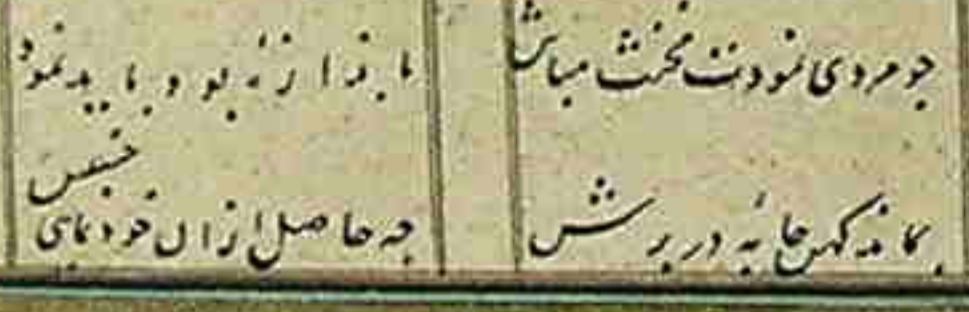 جو مردی نمودت مخنث مباش
باندازهٔ بود باید نمود
بماند کهن جامهٔ در برش
جه حاصل ازان خودنمای